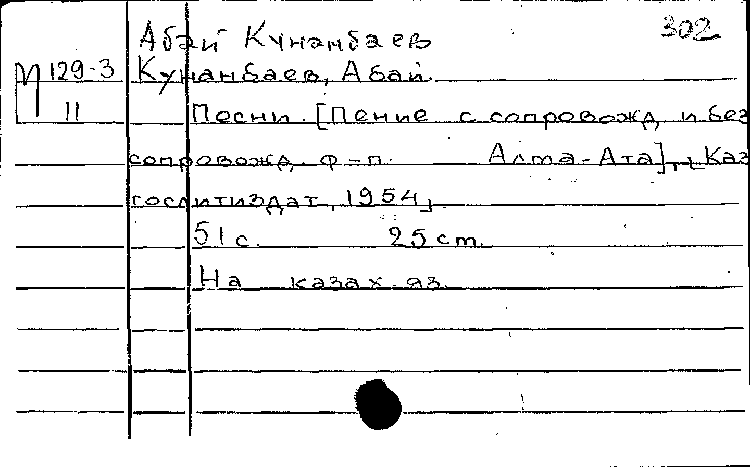 Абай Кунанбаев 302
М 129-3 Кунанбаев, Абай.
11 Песни. [Пение с сопровожд. и без
сопровожд. ф-п. Алма-Ата], Каз
гослитиздат, 1954,
51 с. 25 cm.
На казах. яз.